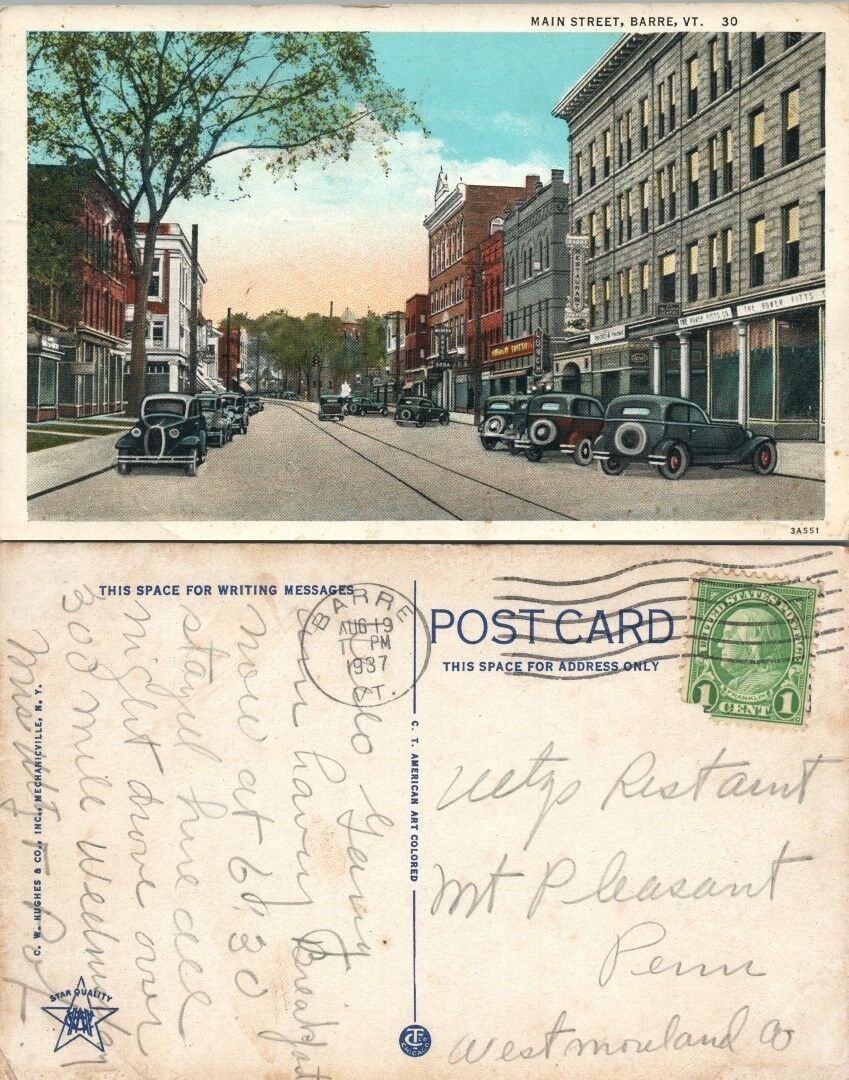 MAIN STREET, BARRE, VT. 30
THE HOMER FITTS CO.
THE HOMER FITTS
RESTAURANT
SODA
3A551
THIS SPACE FOR WRITING MESSAGES
BARRE
AUG 19
PM
1937
VT.
POST CARD
THIS SPACE FOR ADDRESS ONLY
UNITED STATES POSTAGE
FRANKLIN
1 CENT 1
C. T. AMERICAN ART COLORED
C. W. HUGHES & CO., INC., MECHANICVILLE, N. Y.
STAR QUALITY
CHICAGO
Hello Gang
am haven Breakfast
now at 6:30
stayed here all
night drove over
300 mile Wednesday
Mrs W J
Restaurnt
Mt Pleasant
Penn
Westmoreland Co